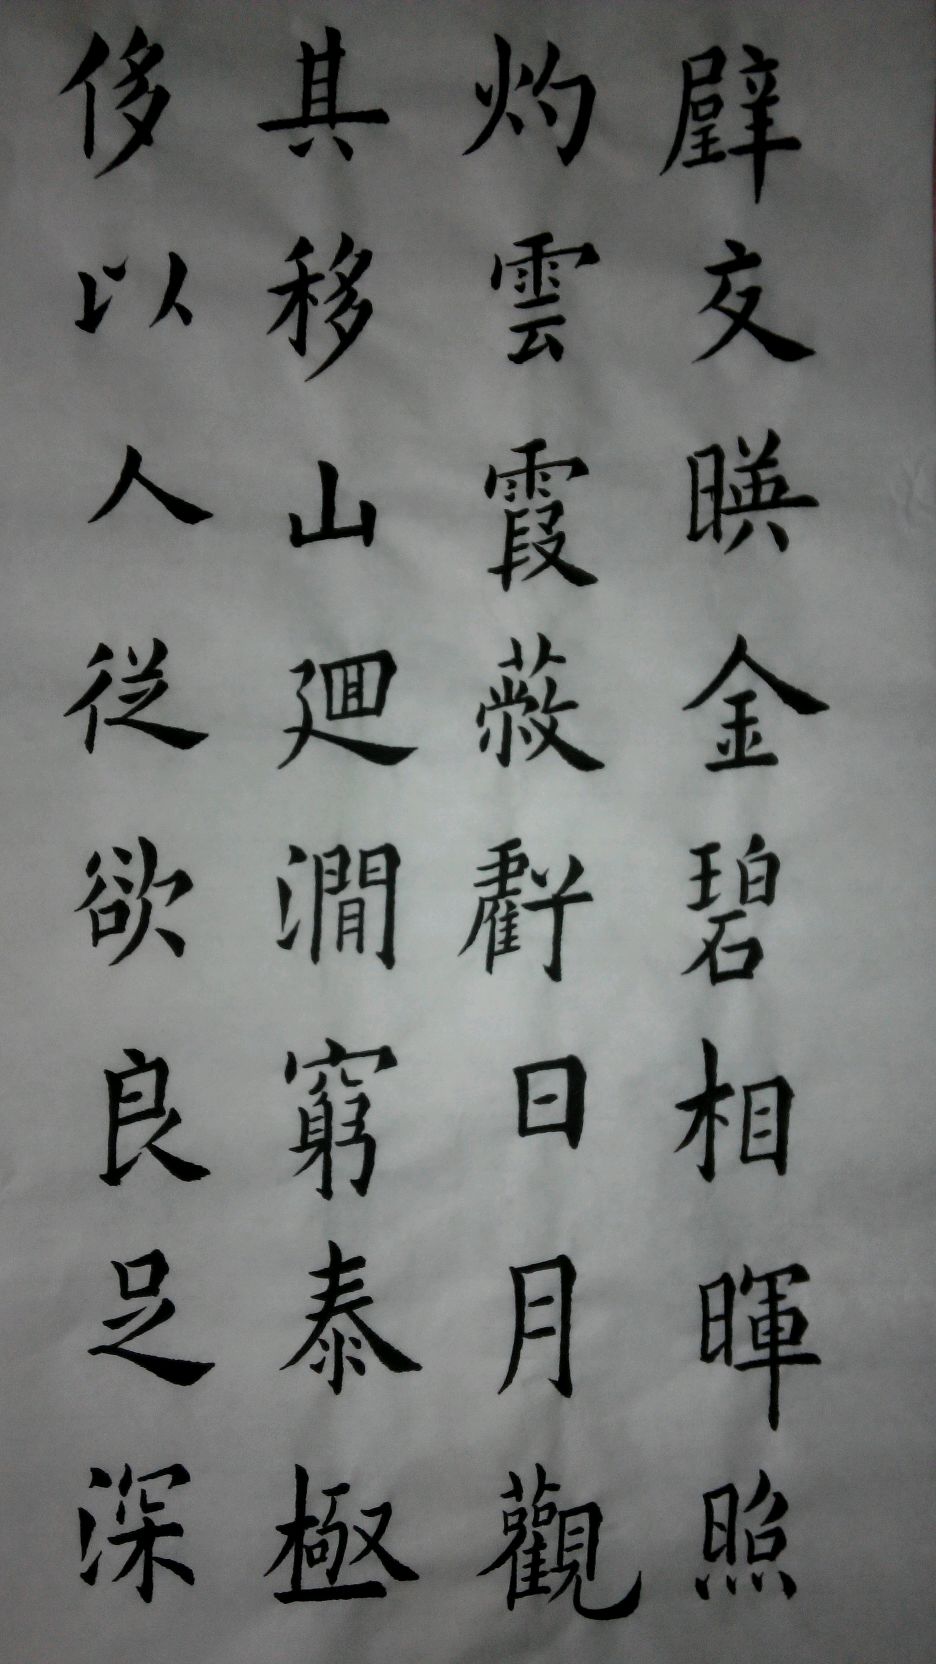 壁交暎金碧相暉照
灼雲霞蔽虧日月觀
其移山廻澗窮泰極
侈以人從欲良足深